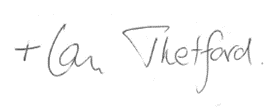 + Ian Thetford.